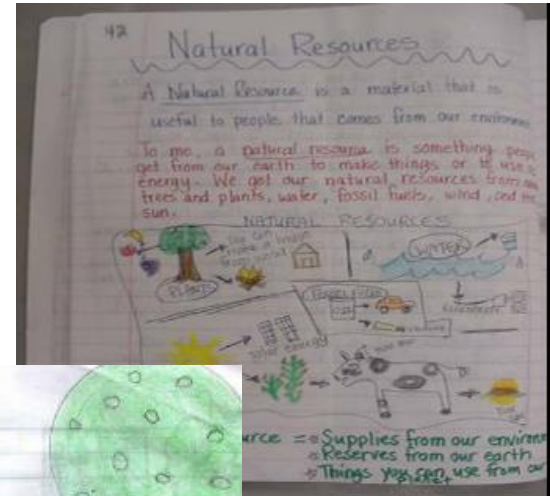 42
Natural Resources
A Natural Resource is a material that is
useful to people that comes from our environm
To me, a natural resource is something peop
get from our earth to make things or to use
energy. We get our natural resources from
trees and plants, water, fossil fuels, wind, and the
sun.
NATURAL RESOURCES
You can make a house from wood
PLANTS
WATER
Fossil Fuels
solar energy
urce = Supplies from our environm
Reserves from our earth
Things you can use from our